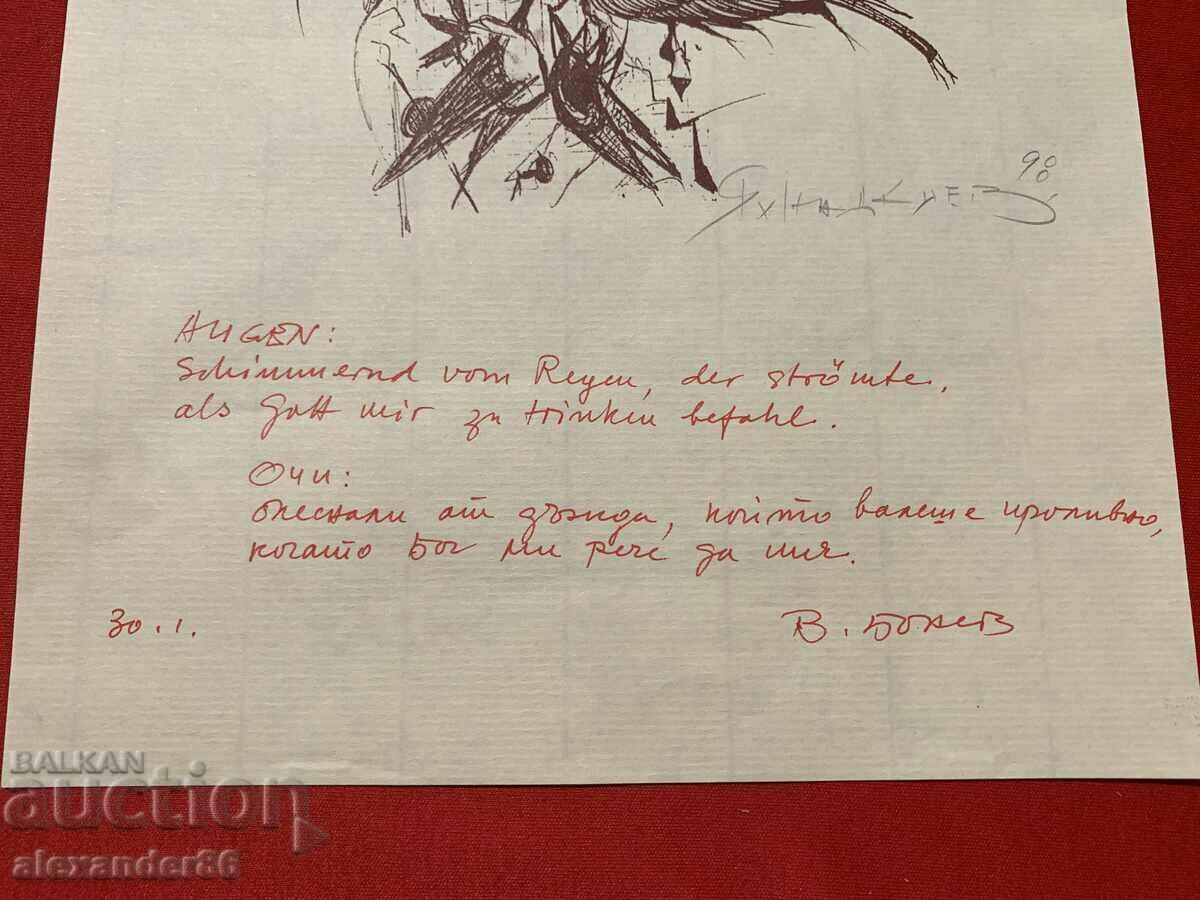 90
AUGEN:
Schimmernd vom Regen, der strömte,
als Gott mir zu trinken befahl.
Очи:
блеснали от дъжда, който валеше проливно,
когато Бог ми рече да пия.
30.1.
В. Бояев
BALKAN
auction
alexander86